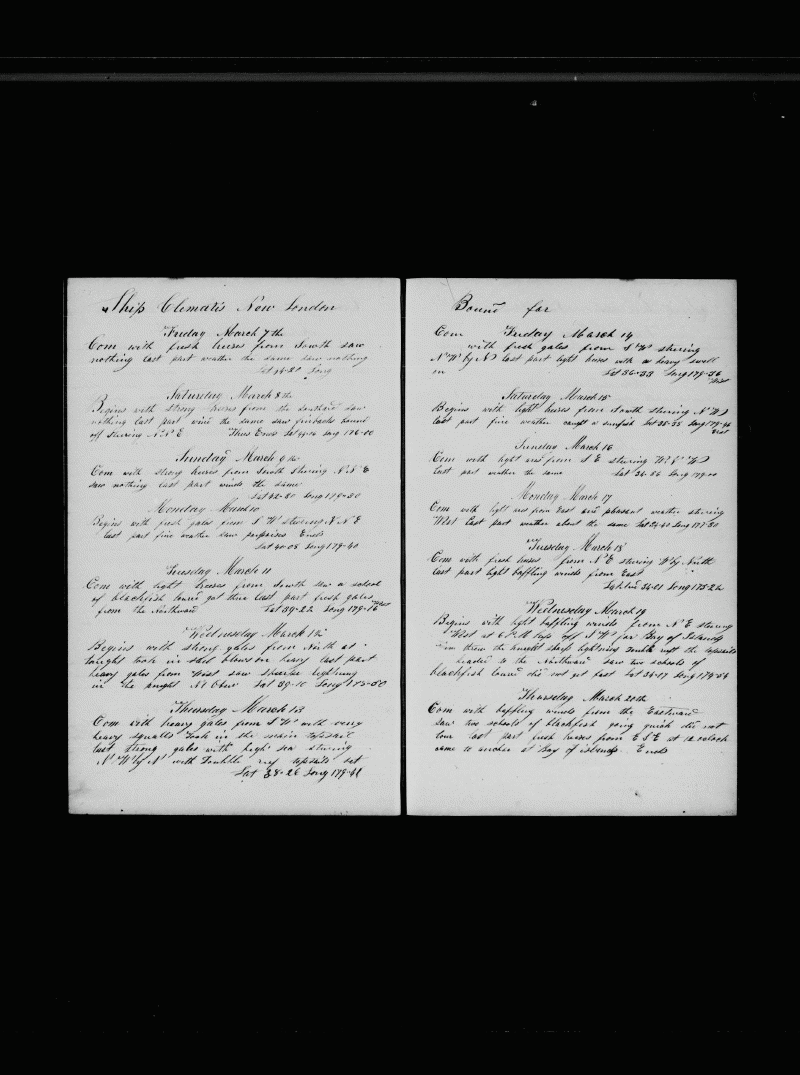 Ship Clematis New London
Friday March 7th
Com with fresh breses from South saw
nothing Last part weather the same saw nothing
Lat 44-20 Long
Saturday March 8th
Begins with strong breses from the southard saw
nothing last part wind the same saw finbacks bound
off stering N N E Thus Ends Lat Long 176-00
Sunday March 9th
Com with strong breses from South stering N N E
saw nothing last part winds the same
Lat 42-20 Long
Monday March 10
Begins with fresh gales from S W stering N N E
last part fine weather saw porpoises Ends
Lat 40-08 Long 179-40
Tuesday March 11
Com with light breses from South saw a school
of blackfish lowrd got three Last part fresh gales
from the Northward Lat 39-22 Long 179-16 West
Wednesday March 12
Begins with strong gales from North at
took in blowson heavy last part
heavy gales from West saw sharp lightning
in the night No Obser Lat 39-10 Long 175-50
Thursday March 13
Com with heavy gales from S W with very
heavy squalls took in the main topsail
last strong gales with high sea stering
N W by N with Doubble reef topsails set
Lat 38-26 Long 179-41
Bound for
Com Friday March 14
with fresh gales from S W stering
N W by N last part light breses with a heavy swell
on Lat 36-33 Long 179-56
West
Saturday March 15
Begins with light breses from South stering N W
last part fine weather caught a sunfish Lat 35-35 Long 179-44
West
Sunday March 16
Com with light ars from S E stering W N W
Last part wether the same Lat 34-56 Long 179-00
Monday March 17
Com with light ars from East and pleasant weather stering
West Last part wather about the same Lat 34-40 Long 177-30
Tuesday March 18
Com with fresh breses from N E stering W by North
last part light baffling winds from East
Latitud 34-21 Long 175-24
Wednesday March 19
Begins with light baffling winds from N E stering
West at 6 P M N W for Bay of Islands
the sharp lightning Double reeft the topsails
headed to the Northward saw two schools of
blackfish lowrd did not get fast Lat 34-17 Long 174-54
Thursday March 20th
Com with baffling winds from the Eastward
saw two schools of blackfish going quick did not
lour last part fresh breses from E S E at 12 oclock
came to anchor at Bay of islands Ends